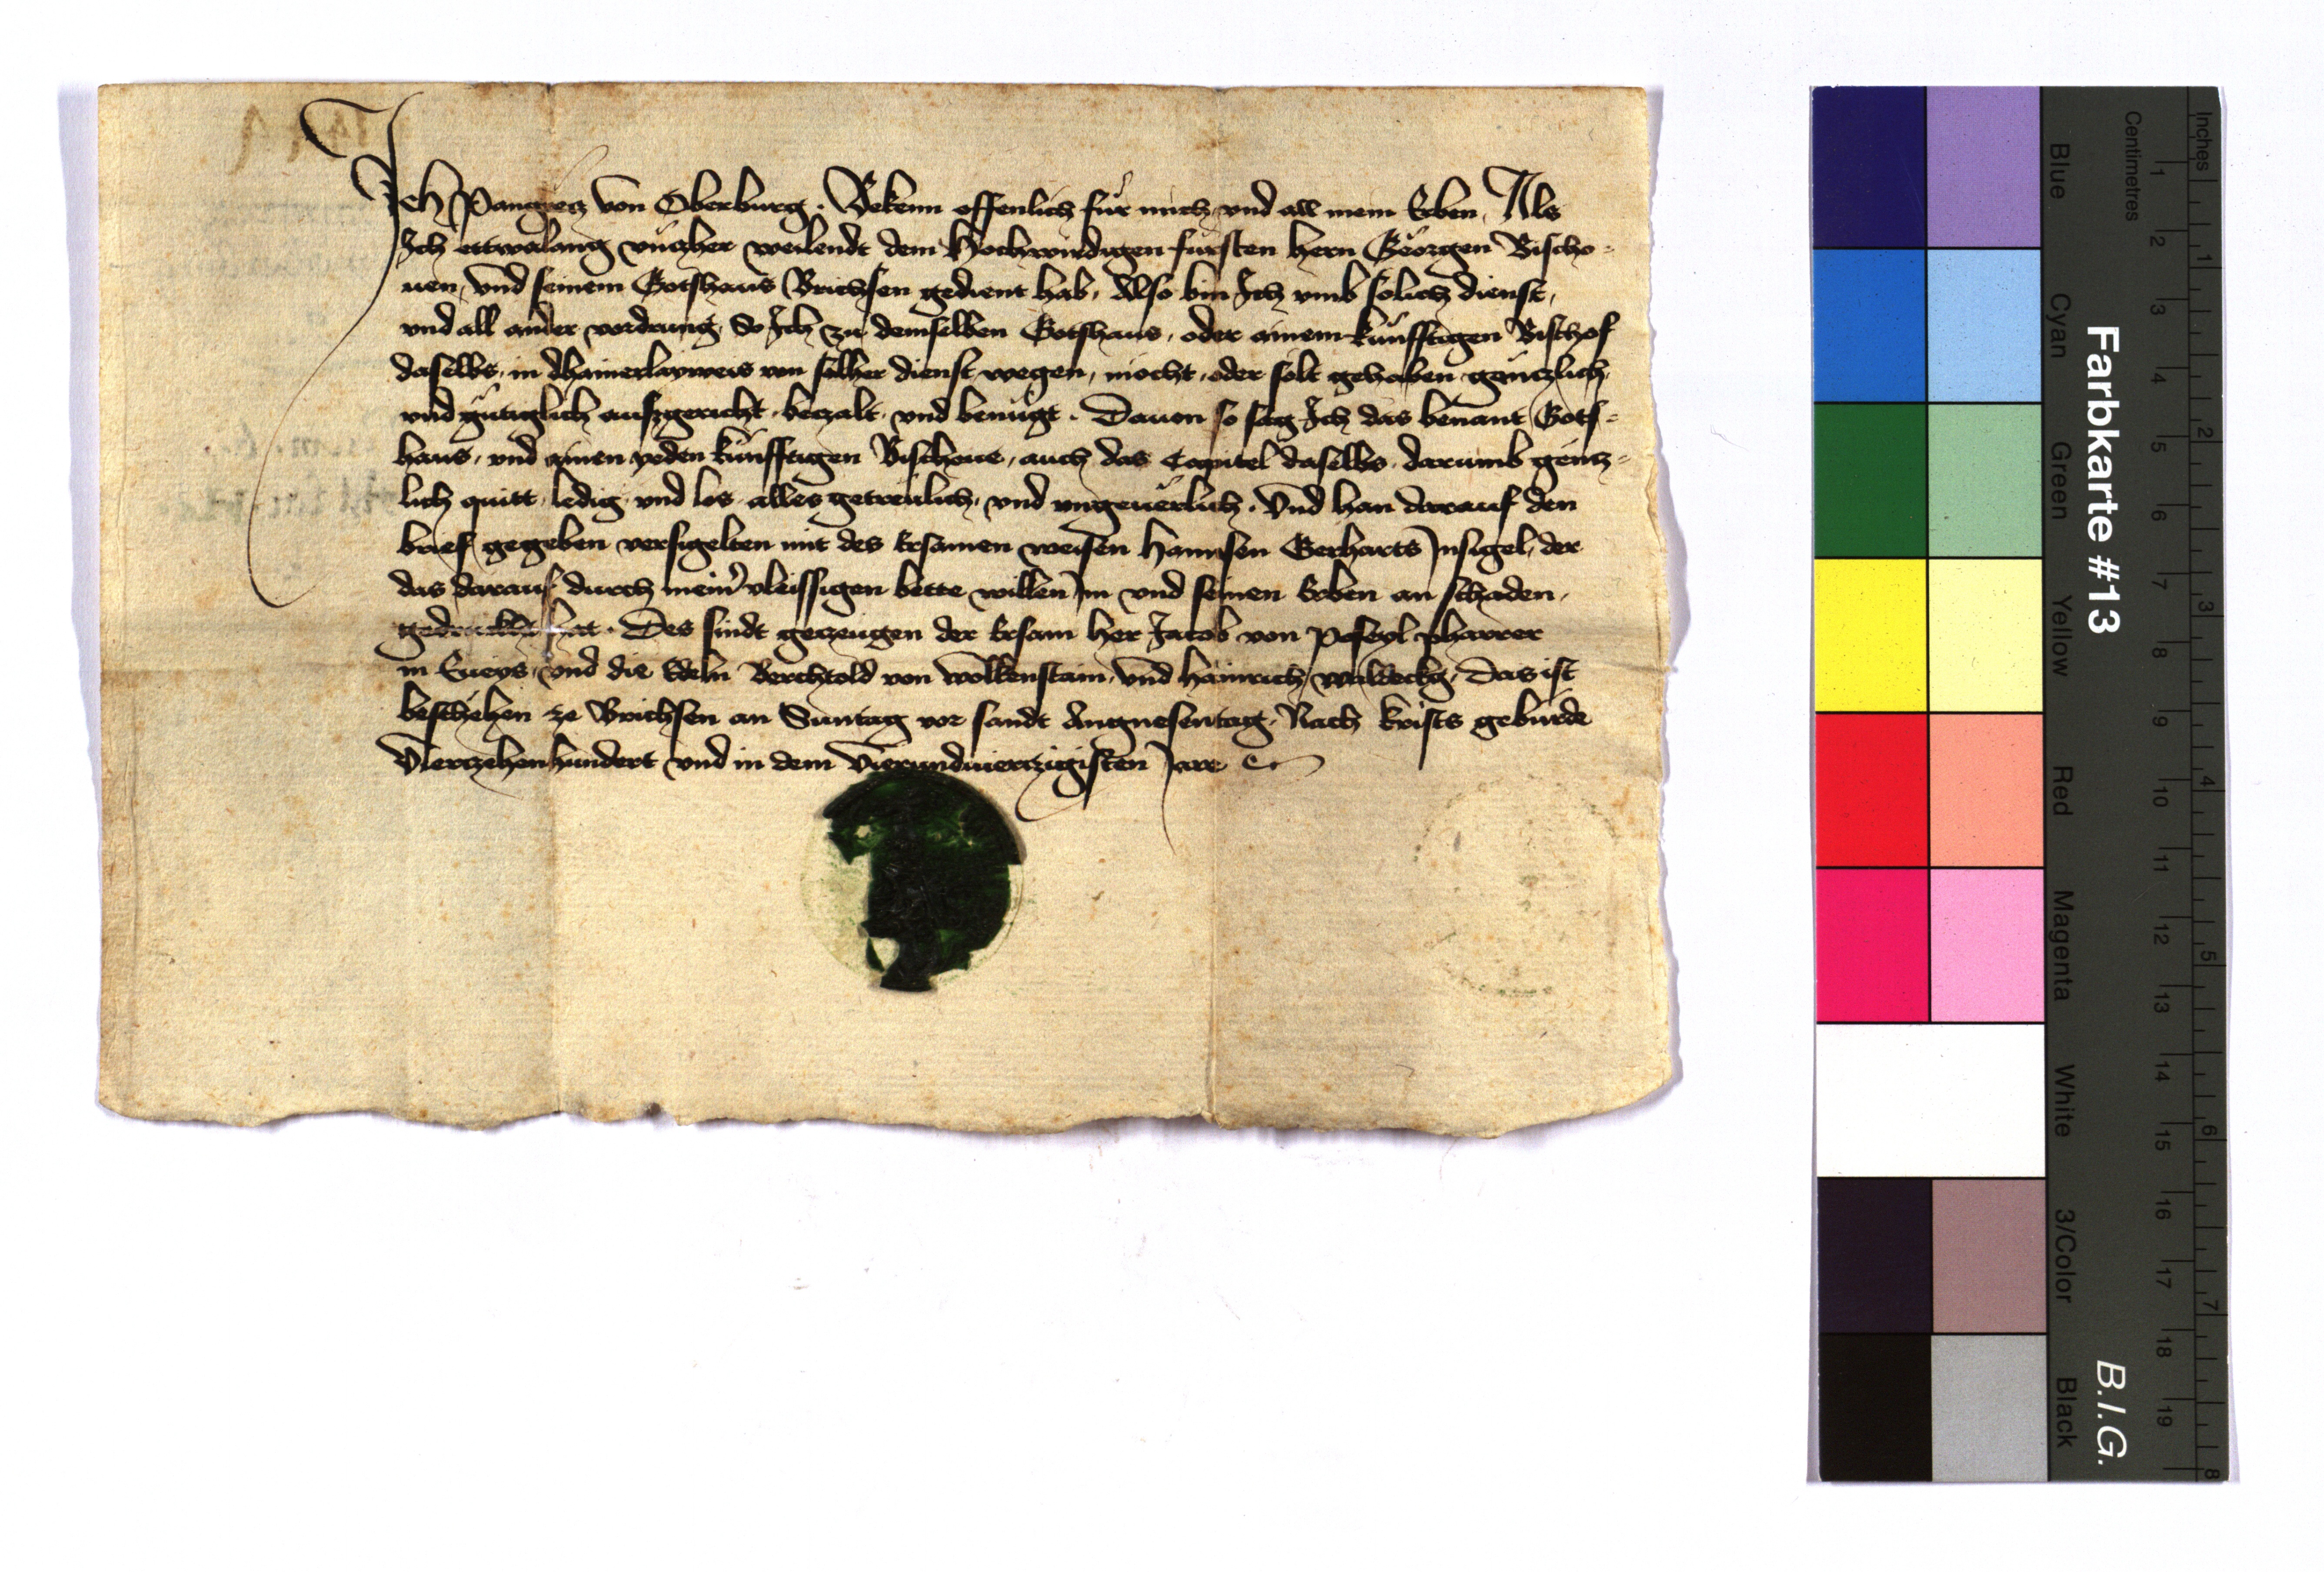 Ich Pangretz von Oberburg. Bekenn offenlich für mich vnd all mein Erben, Als
Ich ettwelang vntzher weilendt dem Hochwirdigen fürsten hern Geörgen Bischo-
uen, vnd seinem Gotshaus Brichsen gedient hab, Also bin Ich vmb solich dienst,
vnd all ander vordrung, So Ich zu demselben Gotshaus, oder ainem künfftigen Bischof
daselbs, in dhainerlayweis von solher dienst wegen, mocht, oder solt gehaben gentzlich,
vnd gütiglich ausgericht, betzalt, vnd benügt. Dauon so sag Ich das benant Gots-
haus, vnd ainen yeden künfftigen Bischoue, auch das Capitel daselbs, darumb gentz-
lich quitt, ledig, vnd los, alles getreülich, vnd vngeuerlich. Vnd han darauf den
brief gegeben versigelten mit des Ersamen weisen Hannsen Gerharts Insigel, der
das darauf durch meiner vleissigen bette willen Im vnd seinen Erben an schaden,
gedruckht hat. Des sindt getzeugen der Ersam her Jacob von Poseyl pharrer
in Eueys, vnd die Edeln Berchtold von Wolkenstain, vnd Hainrich Waldeckg, Das ist
beschehen ze Brichsen an Suntag vor sandt Angnesentag, Nach Krists gebürde
Viertzehenhundert vnd in dem Vierundviertzigisten Jare
Farbkarte #13
B.I.G.
Centimetres
Inches
Blue
Cyan
Green
Yellow
Red
Magenta
White
3/Color
Black
1 2 3 4 5 6 7 8 9 10 11 12 13 14 15 16 17 18 19
1 2 3 4 5 6 7 8